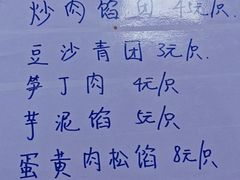 炒肉馅团 4元/只
豆沙青团 3元/只.
笋丁肉 4元/只
芋泥馅 5元/只
蛋黄肉松馅 8元/只.